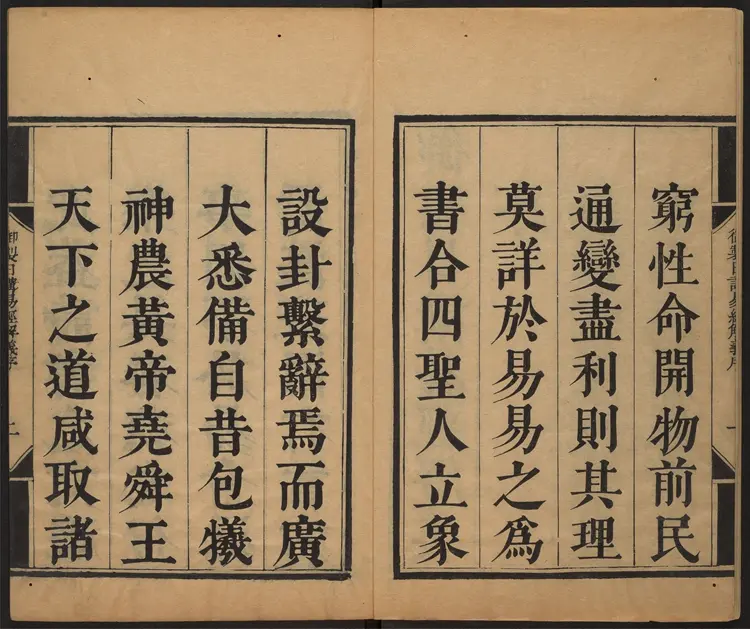 窮性命開物前民
通變盡利則其理
莫詳於易易之為
書合四聖人立象
設卦繫辭焉而廣
大悉備自昔包犧
神農黃帝堯舜王
天下之道咸取諸
御製日講易經解義序
二